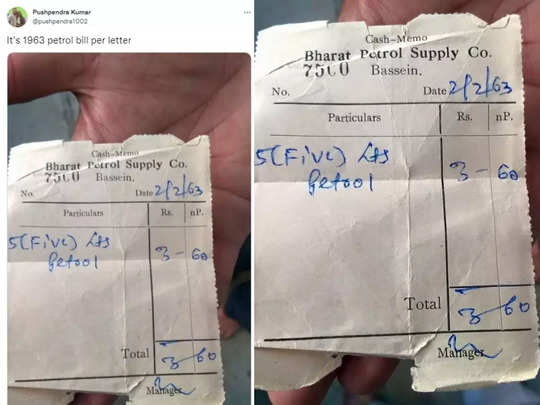 Pushpendra Kumar
@pushpendra1002
It's 1963 petrol bill per letter
Cash-Memo
Bharat Petrol Supply Co.
7500 Bassein.
No. Date 2/2/63
Particulars Rs. nP.
5 (Five) Lts 3 - 60
Petrol
Total 3 60
Manager
Cash-Memo
Bharat Petrol Supply Co.
7500 Bassein.
No. Date 2/2/63
Particulars Rs. nP.
5 (Five) Lts 3 - 60
Petrol
Total 3 - 60
Manager